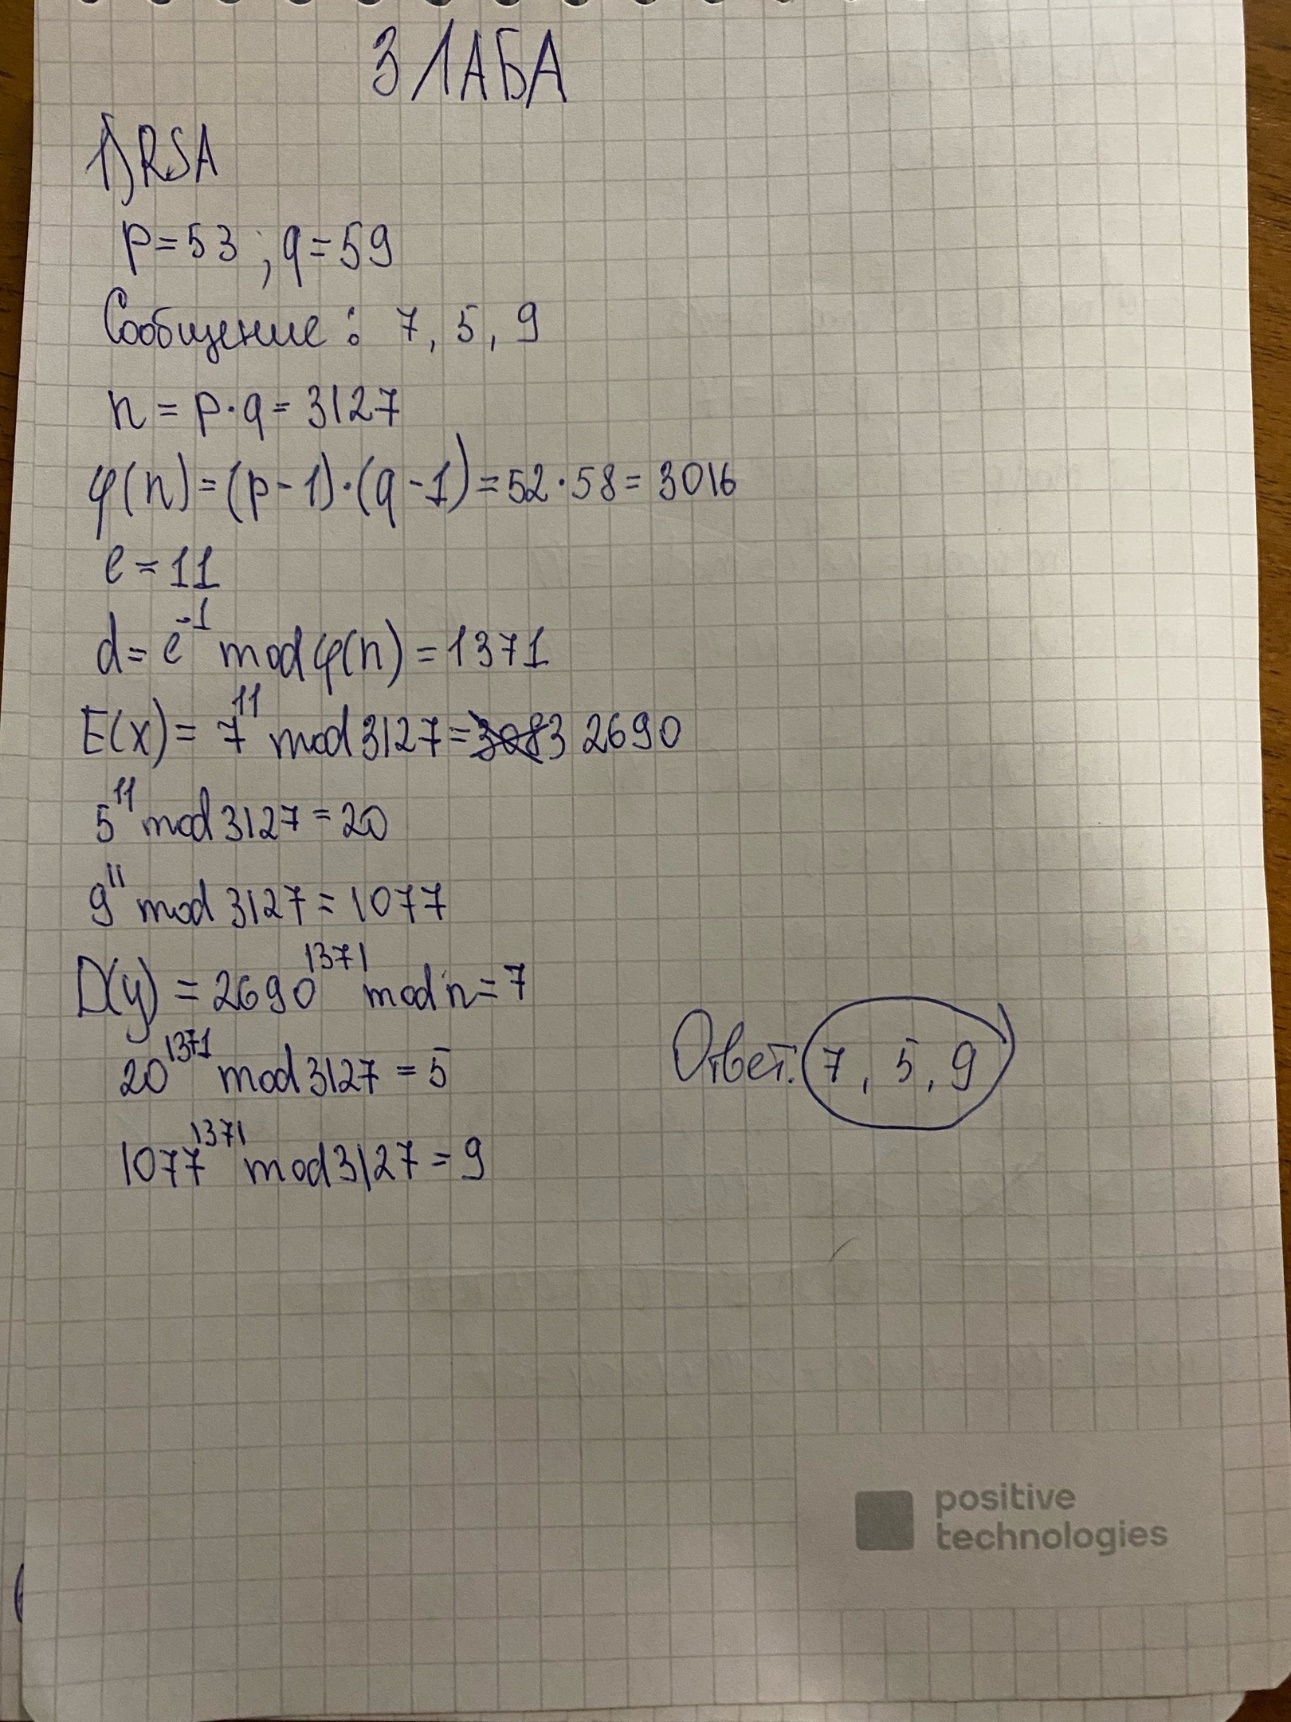 3 ЛАБА
1) RSA
p=53 ; q=59
Сообщение: 7, 5, 9
n = p·q = 3127
φ(n)=(p-1)·(q-1)=52·58=3016
e=11
d=e⁻¹ mod φ(n)=1371
E(x)= 7¹¹ mod 3127= 3083 2690
5¹¹ mod 3127=20
9¹¹ mod 3127=1077
D(y)=2690¹³⁷¹ mod n=7
20¹³⁷¹ mod 3127=5
Ответ: 7, 5, 9
1077¹³⁷¹ mod 3127=9
positive
technologies